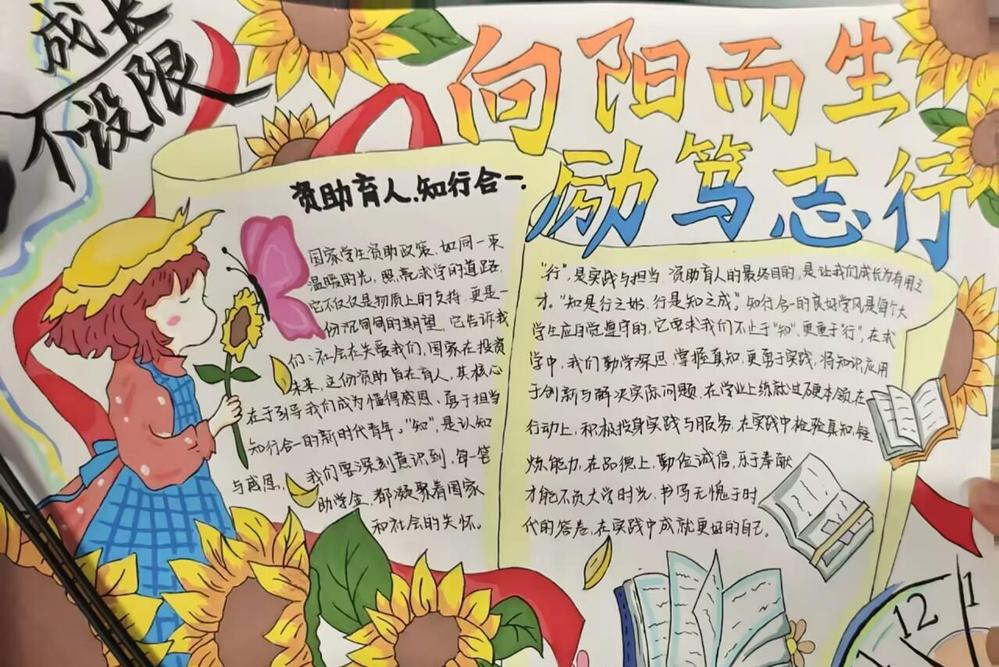 成长
不设限
向阳而生
励笃志行
资助育人.知行合一.
国家学生资助政策.如同一束
温暖阳光,照亮求学的道路.
它不仅仅是物质上的支持.更是一
份沉甸甸的期望.它告诉我
们:社会在关爱我们,国家在投资
未来.这份资助旨在育人,其核心
在于引导我们成为懂得感恩、勇于担当
知行合一的新时代青年。"知",是认知
与感恩,我们要深刻意识到,每一笔
助学金.都凝聚着国家
和社会的关怀。
"行",是实践与担当.资助育人的最终目的,是让我们成长为有用之
才。"知是行之始,行是知之成。"知行合一的良好学风是每个大
学生应自觉遵守的,它要求我们不止于"知",更重于行",在求
学中,我们勤学深思.掌握真知,更勇于实践,将知识应用
于创新与解决实际问题.在学业上练就过硬本领,在
行动上,积极投身实践与服务,在实践中检验真知,锻
炼能力,在品德上,勤俭诚信,乐于奉献
才能不负大学时光,书写无愧于时
代的答卷,在实践中成就更好的自己。
12
1